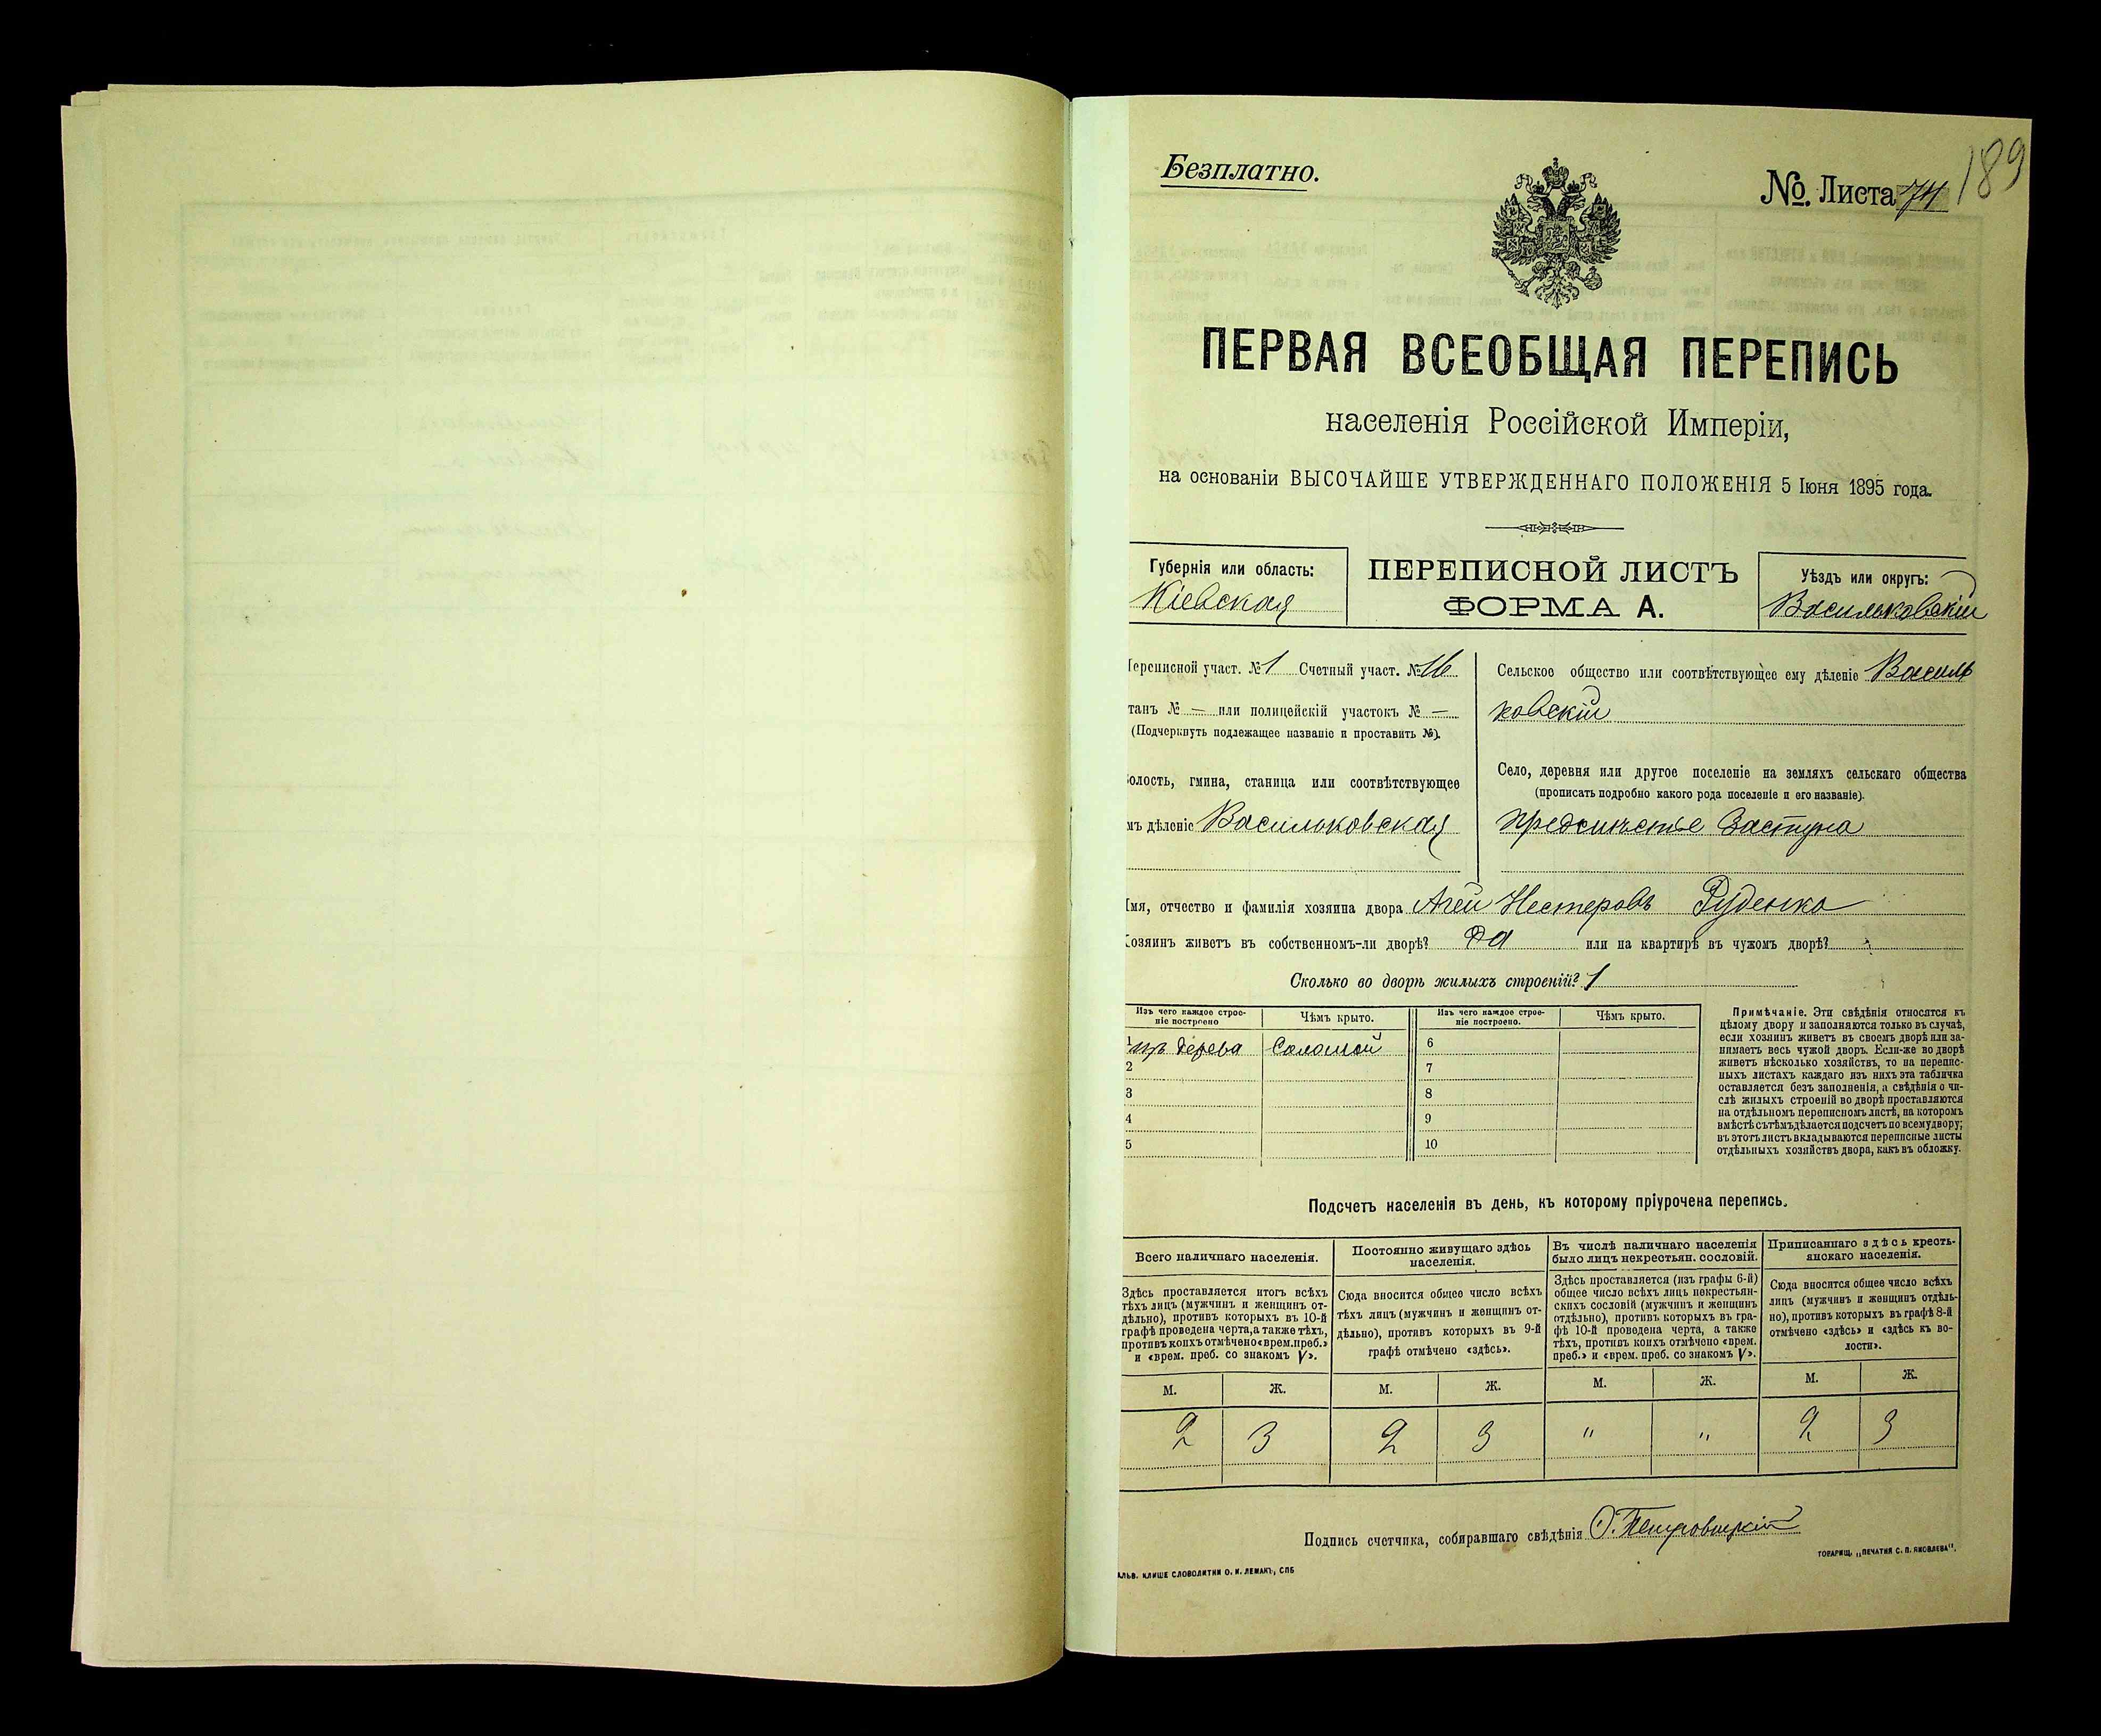 189
Безплатно.
№ Листа 74
ПЕРВАЯ ВСЕОБЩАЯ ПЕРЕПИСЬ
населенія Россійской Имперіи,
на основаніи ВЫСОЧАЙШЕ УТВЕРЖДЕННАГО ПОЛОЖЕНІЯ 5 Іюня 1895 года.
Губернія или область:
Кіевская
ПЕРЕПИСНОЙ ЛИСТЪ
ФОРМА А.
Уѣздъ или округъ:
Васильковскій
Переписной участ. № 1 Счетный участ. № 16
танъ № — или полицейскій участокъ № —
(Подчеркнуть подлежащее названіе и проставить №).
волость, гмина, станица или соотвѣтствующее
мъ дѣленіе Васильковская
Сельское общество или соотвѣтствующее ему дѣленіе Василь
ковскій
Село, деревня или другое поселеніе на земляхъ сельскаго общества
(прописать подробно какого рода поселеніе и его названіе).
предмѣстье Застуга
Имя, отчество и фамилія хозяина двора Агей Нестеровъ Руденко
Хозяинъ живетъ въ собственномъ-ли дворѣ? Да или на квартирѣ въ чужомъ дворѣ?
Сколько во дворѣ жилыхъ строеній? 1
Изъ чего каждое строе-
ніе построено
Чѣмъ крыто.
Изъ чего каждое строе-
ніе построено.
Чѣмъ крыто.
1 изъ дерева Соломой 6
2 7
3 8
4 9
5 10
Примѣчаніе. Эти свѣдѣнія относятся къ
цѣлому двору и заполняются только въ случаѣ,
если хозяинъ живетъ въ своемъ дворѣ или за-
нимаетъ весь чужой дворъ. Если-же во дворѣ
живетъ нѣсколько хозяйствъ, то на перепис-
ныхъ листахъ каждаго изъ нихъ эта табличка
оставляется безъ заполненія, а свѣдѣнія о чи-
слѣ жилыхъ строеній во дворѣ проставляются
на отдѣльномъ переписномъ листѣ, на которомъ
вмѣстѣ съ тѣмъ дѣлается подсчетъ по всему двору;
въ этотъ листъ вкладываются переписные листы
отдѣльныхъ хозяйствъ двора, какъ въ обложку.
Подсчетъ населенія въ день, къ которому пріурочена перепись.
Всего наличнаго населенія.
Здѣсь проставляется итогъ всѣхъ
тѣхъ лицъ (мужчинъ и женщинъ от-
дѣльно), противъ которыхъ въ 10-й
графѣ проведена черта, а также тѣхъ,
противъ коихъ отмѣчено «врем. преб.»
и «врем. преб. со знакомъ V».
Постоянно живущаго здѣсь
населенія.
Сюда вносится общее число всѣхъ
тѣхъ лицъ (мужчинъ и женщинъ от-
дѣльно), противъ которыхъ въ 9-й
графѣ отмѣчено «здѣсь».
Въ числѣ наличнаго населенія
было лицъ некрестьян. сословій.
Здѣсь проставляется (изъ графы 6-й)
общее число всѣхъ лицъ некрестьян-
скихъ сословій (мужчинъ и женщинъ
отдѣльно), противъ которыхъ въ гра-
фѣ 10-й проведена черта, а также
тѣхъ, противъ коихъ отмѣчено «врем.
преб.» и «врем. преб. со знакомъ V».
Приписаннаго здѣсь кресть-
янскаго населенія.
Сюда вносится общее число всѣхъ
лицъ (мужчинъ и женщинъ отдѣль-
но), противъ которыхъ въ графѣ 8-й
отмѣчено «здѣсь» и «здѣсь къ во-
лости».
М. Ж. М. Ж. М. Ж. М. Ж.
2 3 2 3 " " 2 3
Подпись счетчика, собиравшаго свѣдѣнія О. Петровицкій
ТОВАРИЩ. „ПЕЧАТНЯ С. П. ЯКОВЛЕВА".
ЛЬВ. КЛИШЕ СЛОВОЛИТНИ О. И. ЛЕМАНЪ, СПБ